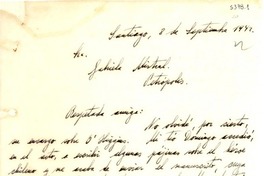 5348.1
Santiago, 8 de Septiembre 1942
Sra.
Gabriela Mistral.
Petrópolis.
Respetada amiga:
No olvidé, por cierto,
su encargo sobre O'Higgins. Mi tío Domingo accedió,
en el acto, a escribir algunas páginas sobre el héroe
chileno y me acaba de enviar el manuscrito, cuya